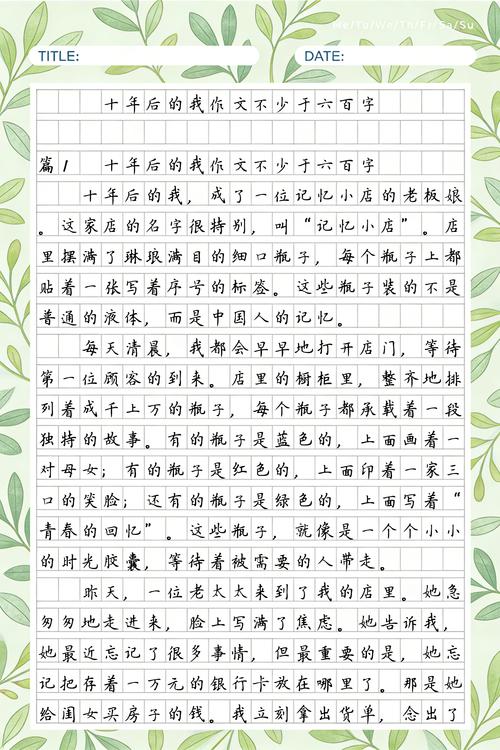 Mo/Tu/We/Th/Fr/Sa/Su
TITLE: DATE:
十年后的我作文不少于六百字
篇1 十年后的我作文不少于六百字
十年后的我，成了一位记忆小店的老板娘
。这家店的名字很特别，叫“记忆小店”。店
里摆满了琳琅满目的细口瓶子，每个瓶子上都
贴着一张写着序号的标签。这些瓶子装的不是
普通的液体，而是中国人的记忆。
每天清晨，我都会早早地打开店门，等待
第一位顾客的到来。店里的橱柜里，整齐地排
列着成千上万的瓶子，每个瓶子都承载着一段
独特的故事。有的瓶子是蓝色的，上面画着一
对母女；有的瓶子是红色的，上面印着一家三
口的笑脸；还有的瓶子是绿色的，上面写着“
青春的回忆”。这些瓶子，就像是一个个小小
的时光胶囊，等待着被需要的人带走。
昨天，一位老太太来到了我的店里。她急
匆匆地走进来，脸上写满了焦虑。她告诉我，
她最近忘记了很多事情，但最重要的是，她忘
记把存着一万元的银行卡放在哪里了。那是她
给闺女买房子的钱。我立刻拿出货单，念出了